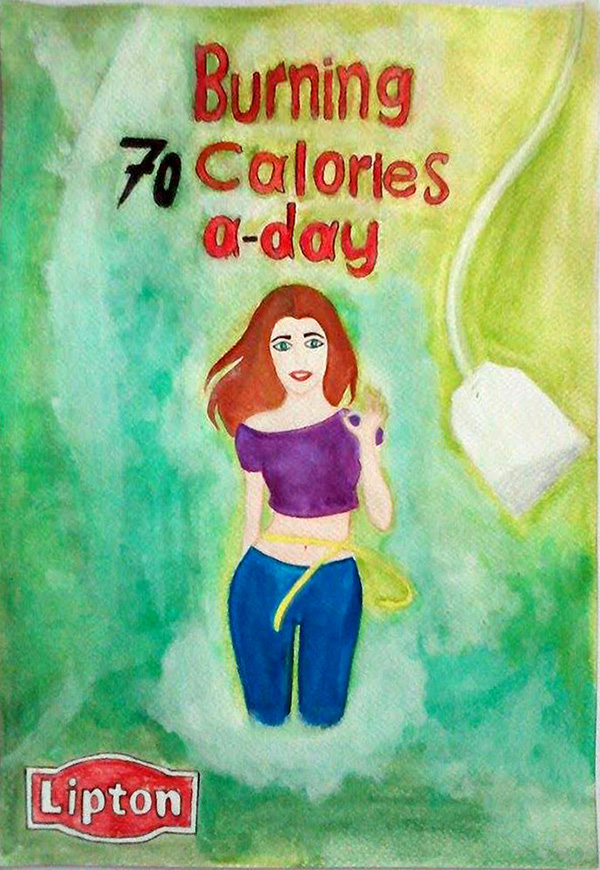 Burning
70 Calories
a-day
Lipton